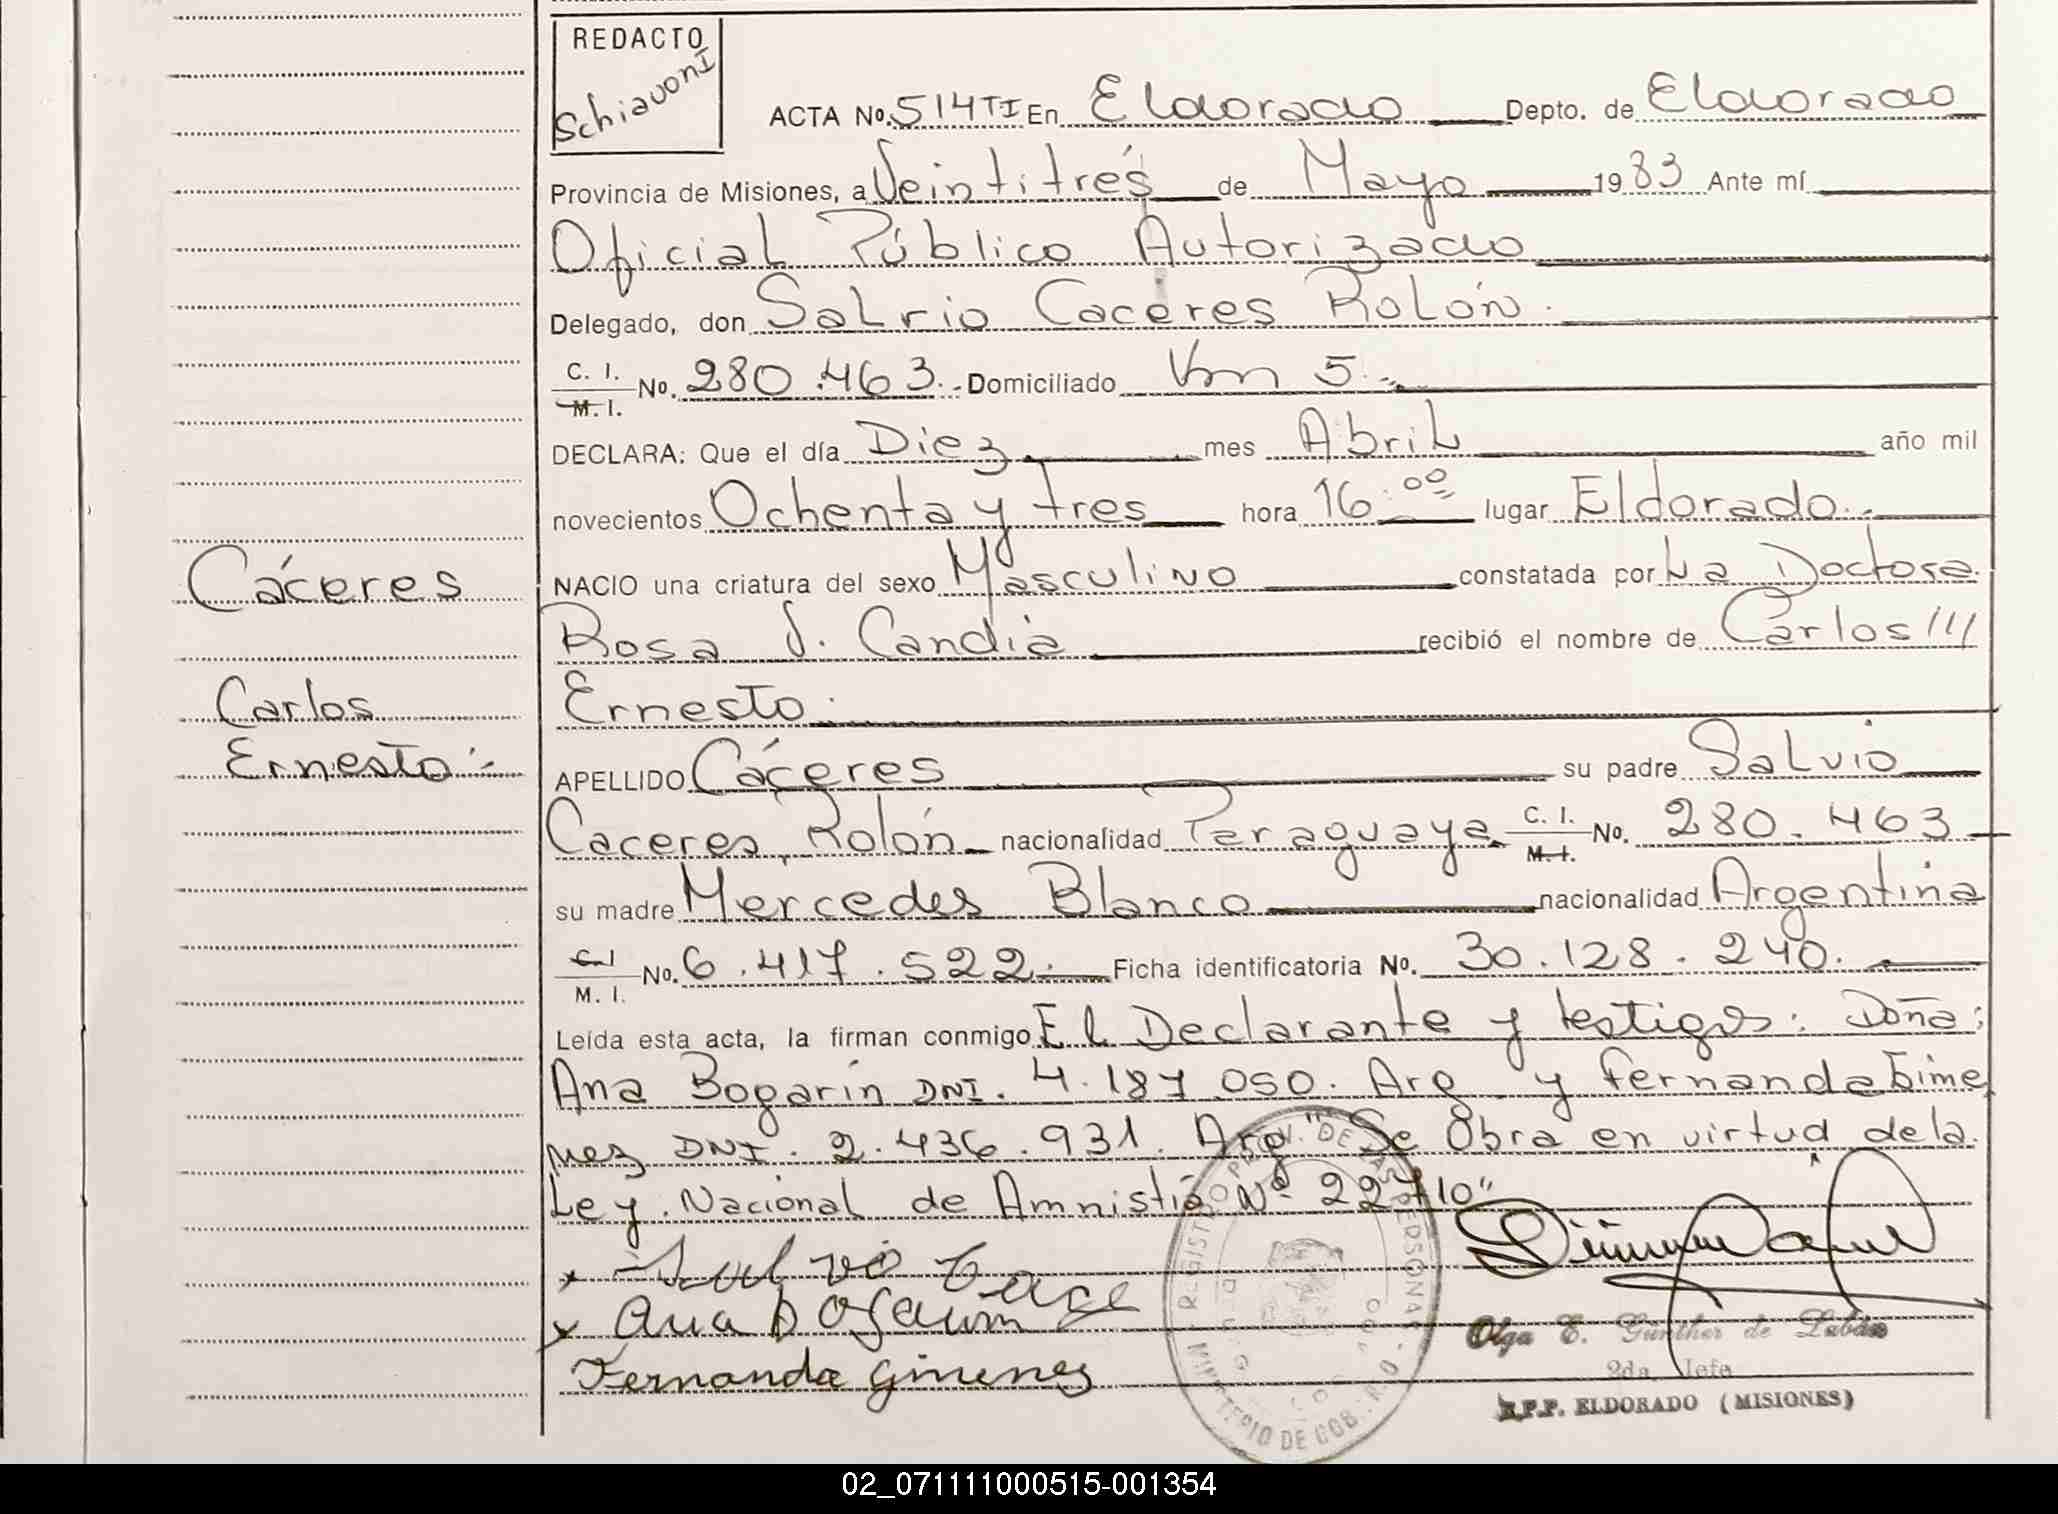 REDACTO
Schiavoni
ACTA No. 514 TI En Eldorado Depto. de Eldorado
Provincia de Misiones, a Veintitrés de Mayo 1983 Ante mí
Oficial Público Autorizado
Delegado, don Salvio Caceres Rolón.
C. I.
M. I. No. 280.463. Domiciliado Km 5.-
DECLARA: Que el día Diez mes Abril año mil
novecientos Ochenta y tres hora 16:00 lugar Eldorado.-
NACIO una criatura del sexo Masculino constatada por La Doctora
Rosa V. Candia recibió el nombre de Carlos ///
Ernesto.
APELLIDO Cáceres su padre Salvio
Caceres Rolón nacionalidad Paraguaya C. I.
M. I. No. 280.463
su madre Mercedes Blanco nacionalidad Argentina
C. I
M. I. No. 6.417.522.- Ficha identificatoria No. 30.128.240.
Leída esta acta, la firman conmigo El Declarante y testigos: Doña:
Ana Bogarín DNI. 4.187.050. Arg y Fernanda Gime
nez DNI. 2.436.931. Arg "Se Obra en virtud de la
Ley Nacional de Amnistía Nº 22710"
x Salvio Cace
x Ana Bogarin
Fernanda Gimenez
Olga E. Günther de Labán
2da. Jefe
R.P.P. ELDORADO (MISIONES)
Cáceres
Carlos
Ernesto.-
02_071111000515-001354